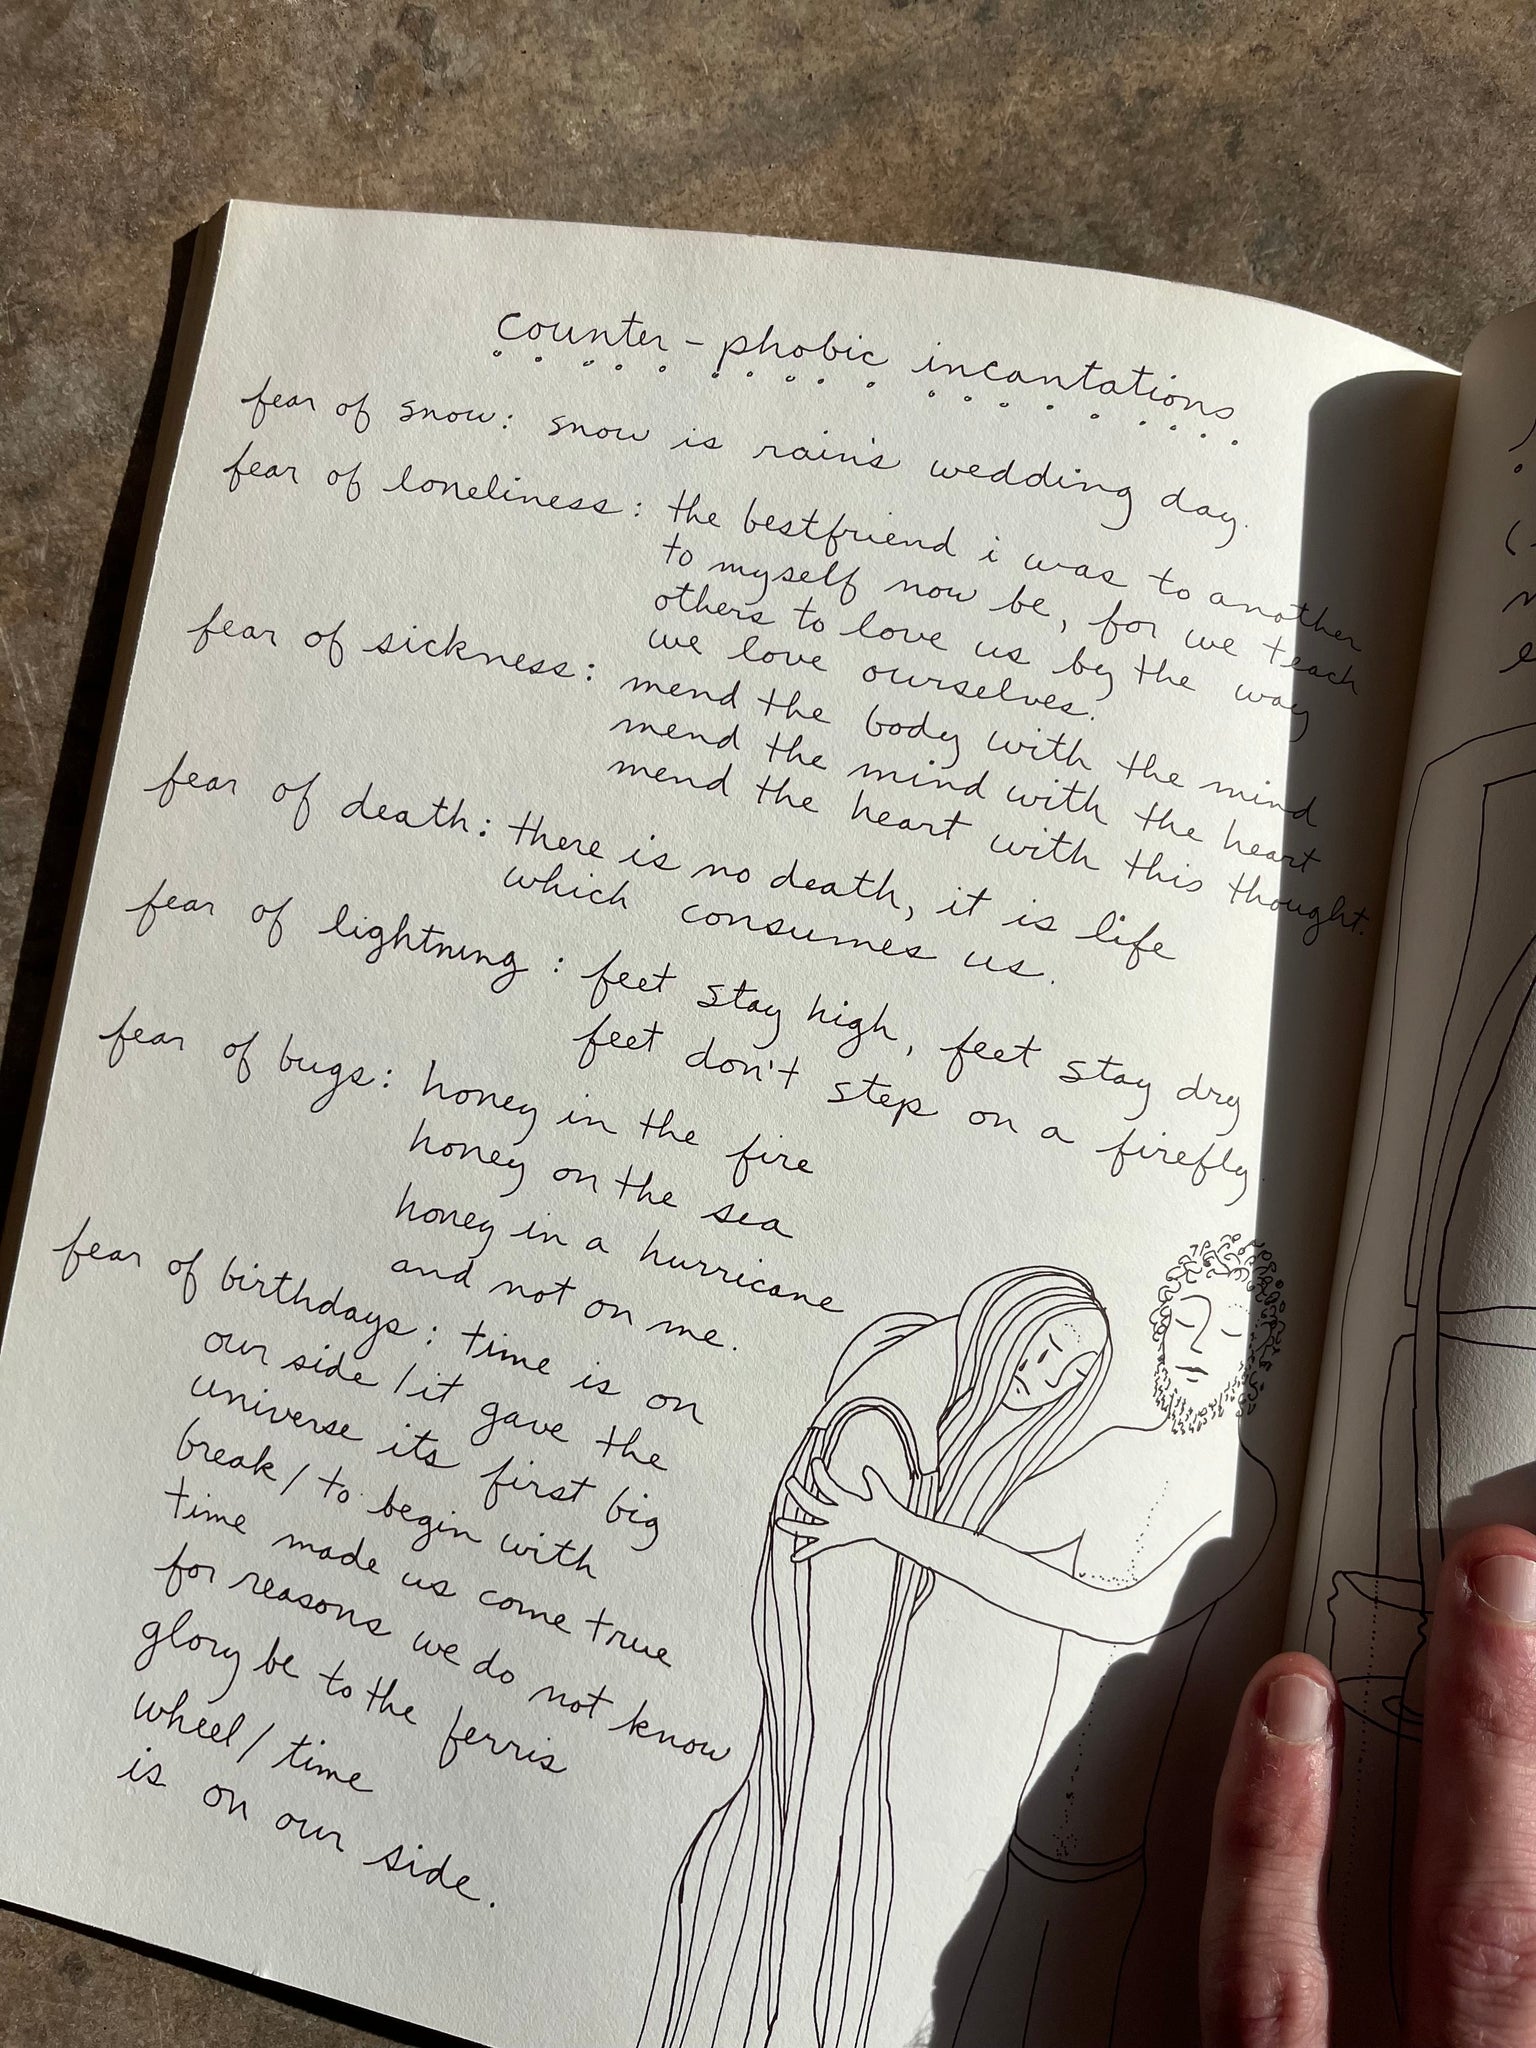 counter-phobic incantations
fear of snow: snow is rain's wedding day.
fear of loneliness: the bestfriend i was to another
to myself now be, for we teach
others to love us by the way
we love ourselves.
fear of sickness: mend the body with the mind
mend the mind with the heart
mend the heart with this thought.
fear of death: there is no death, it is life
which consumes us.
fear of lightning: feet stay high, feet stay dry
feet don't step on a firefly
fear of bugs: honey in the fire
honey on the sea
honey in a hurricane
and not on me.
fear of birthdays: time is on
our side / it gave the
universe its first big
break / to begin with
time made us come true
for reasons we do not know
glory be to the ferris
wheel / time
is on our side.